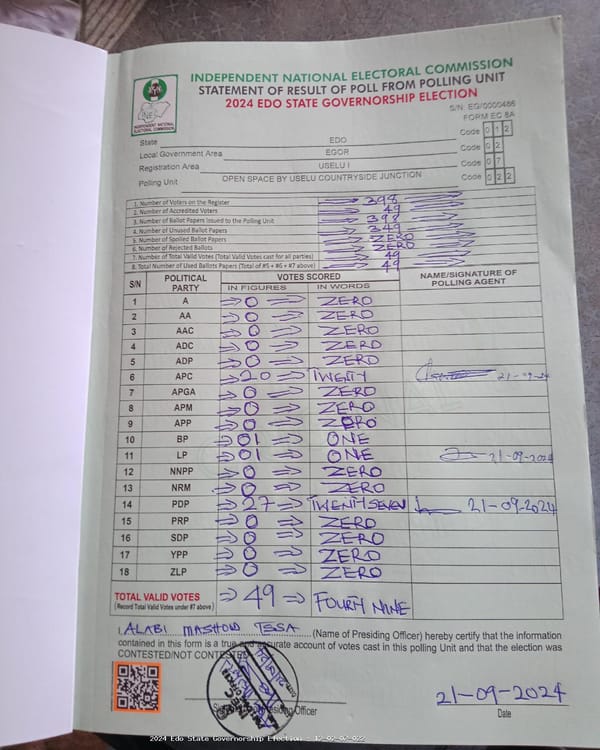 INDEPENDENT NATIONAL ELECTORAL COMMISSION
STATEMENT OF RESULT OF POLL FROM POLLING UNIT
2024 EDO STATE GOVERNORSHIP ELECTION
INDEPENDENT NATIONAL ELECTORAL COMMISSION
S/N: EG/0000486
FORM EC 8A
State EDO Code 0 1 2
Local Government Area EGOR Code 0 2
Registration Area USELU I Code 0 7
Polling Unit OPEN SPACE BY USELU COUNTRYSIDE JUNCTION Code 0 2 2
1. Number of Voters on the Register 398
2. Number of Accredited Voters 49
3. Number of Ballot Papers Issued to the Polling Unit 398
4. Number of Unused Ballot Papers 349
5. Number of Spoiled Ballot Papers ZERO
6. Number of Rejected Ballots ZERO
7. Number of Total Valid Votes (Total Valid Votes cast for all parties) 49
8. Total Number of Used Ballots Papers (Total of #5 + #6 + #7 above) 49
S/N POLITICAL PARTY VOTES SCORED NAME/SIGNATURE OF POLLING AGENT
IN FIGURES IN WORDS
1 A 0 ZERO
2 AA 0 ZERO
3 AAC 0 ZERO
4 ADC 0 ZERO
5 ADP 0 ZERO
6 APC 20 TWENTY 21-09-24
7 APGA 0 ZERO
8 APM 0 ZERO
9 APP 0 ZERO
10 BP 01 ONE
11 LP 01 ONE 21-09-2024
12 NNPP 0 ZERO
13 NRM 0 ZERO
14 PDP 27 TWENTY SEVEN 21-09-2024
15 PRP 0 ZERO
16 SDP 0 ZERO
17 YPP 0 ZERO
18 ZLP 0 ZERO
TOTAL VALID VOTES 49 FOURTH NINE
(Record Total Valid Votes under #7 above)
I, ALABI MASHOLD (Name of Presiding Officer) hereby certify that the information
contained in this form is a true and accurate account of votes cast in this polling Unit and that the election was
CONTESTED/NOT CONTESTED
Presiding Officer
21-09-2024
Date
2024 Edo State Governorship Election - 12-02-07-022